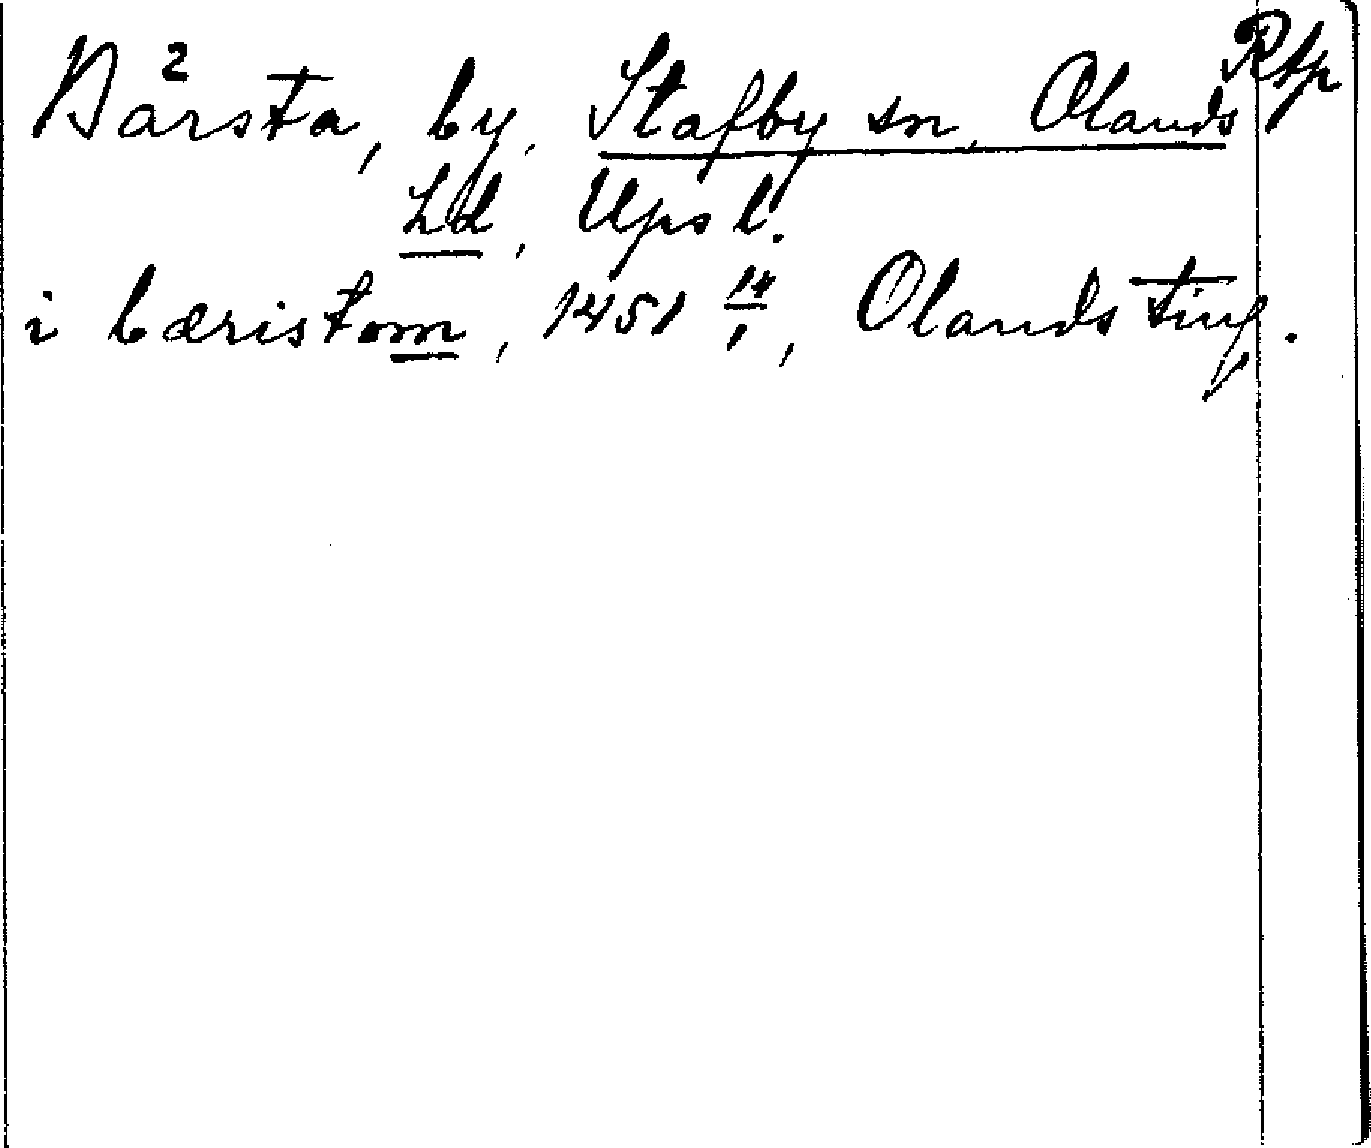 Rtp
Bärsta, by, Stafby sn, Olands
hd, Upsl.
i bæristom, 1451 14/1, Olands ting.